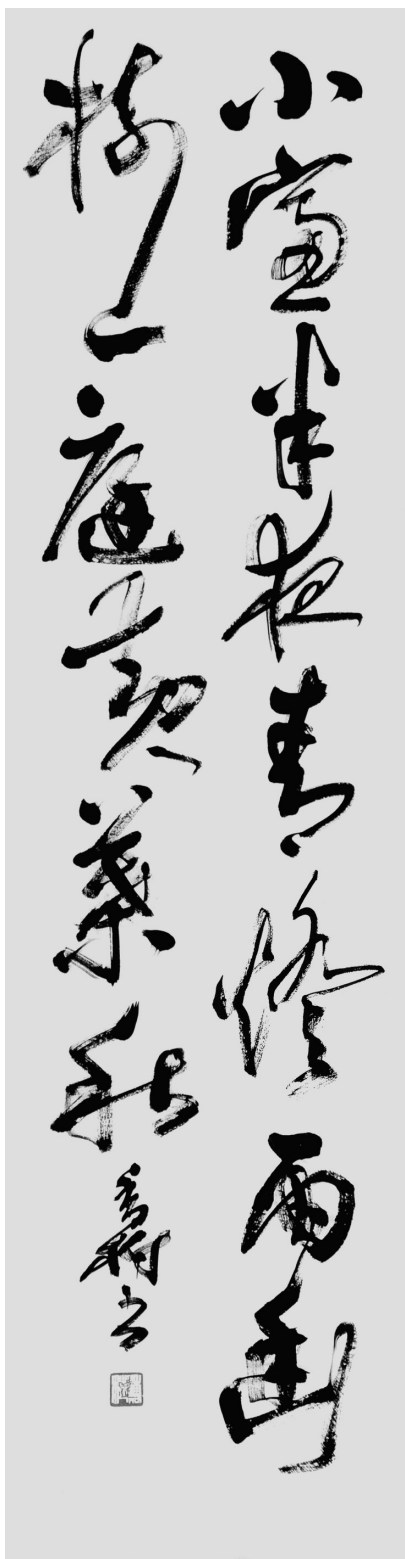 小窗半夜青燈雨幽
樹一庭黄葉秋 書